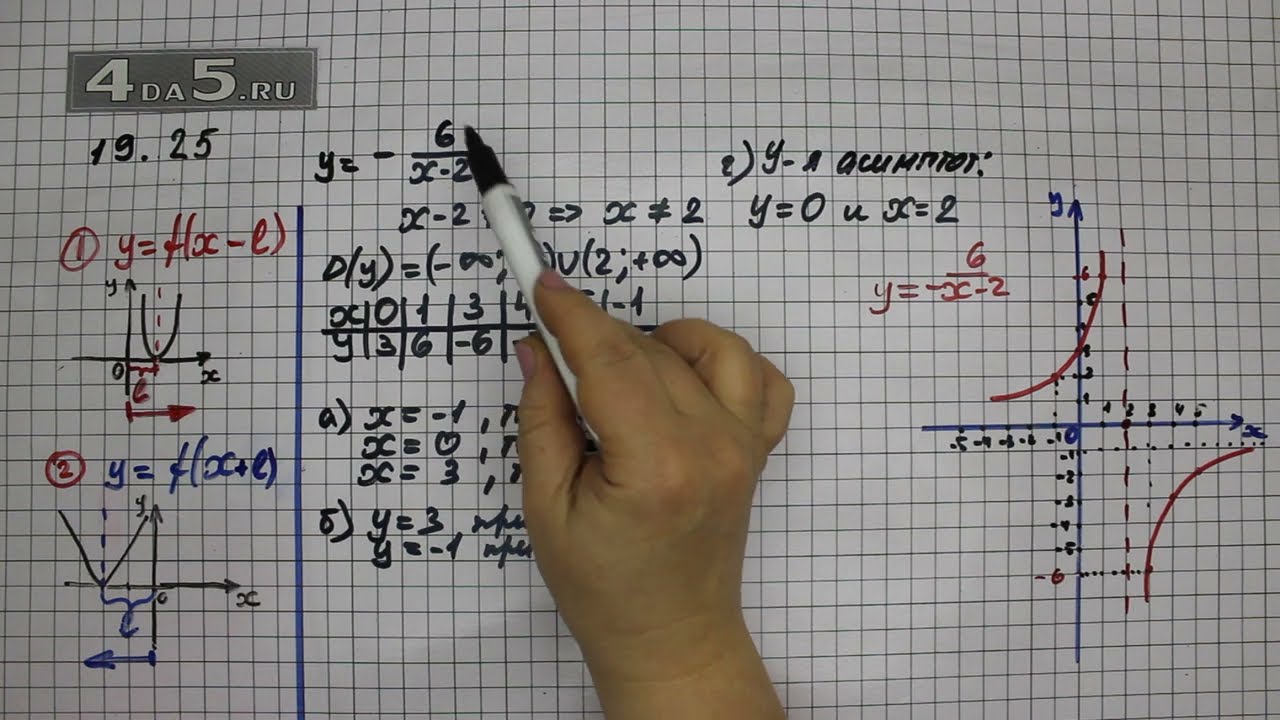 4DA5.RU
19.25
① y=f(x-l)
y
0
x
l
② y=f(x+l)
y
0
x
l
y= - 6/(x-2)
x-2 => x ≠ 2
D(y)=(-∞; )∪(2;+∞)
x|0|1|3|4 |-1
y|3|6|-6|
а) x=-1,
x=0,
x=3,
б) y=3 при
y=-1 при
г) У-я асимптот:
y=0 и x=2
y=-6/(x-2)
y
6
5
3
2
1
-5 -4 -3 -2 -1 0 1 2 3 4 5 x
-1
-2
-3
-4
-5
-6